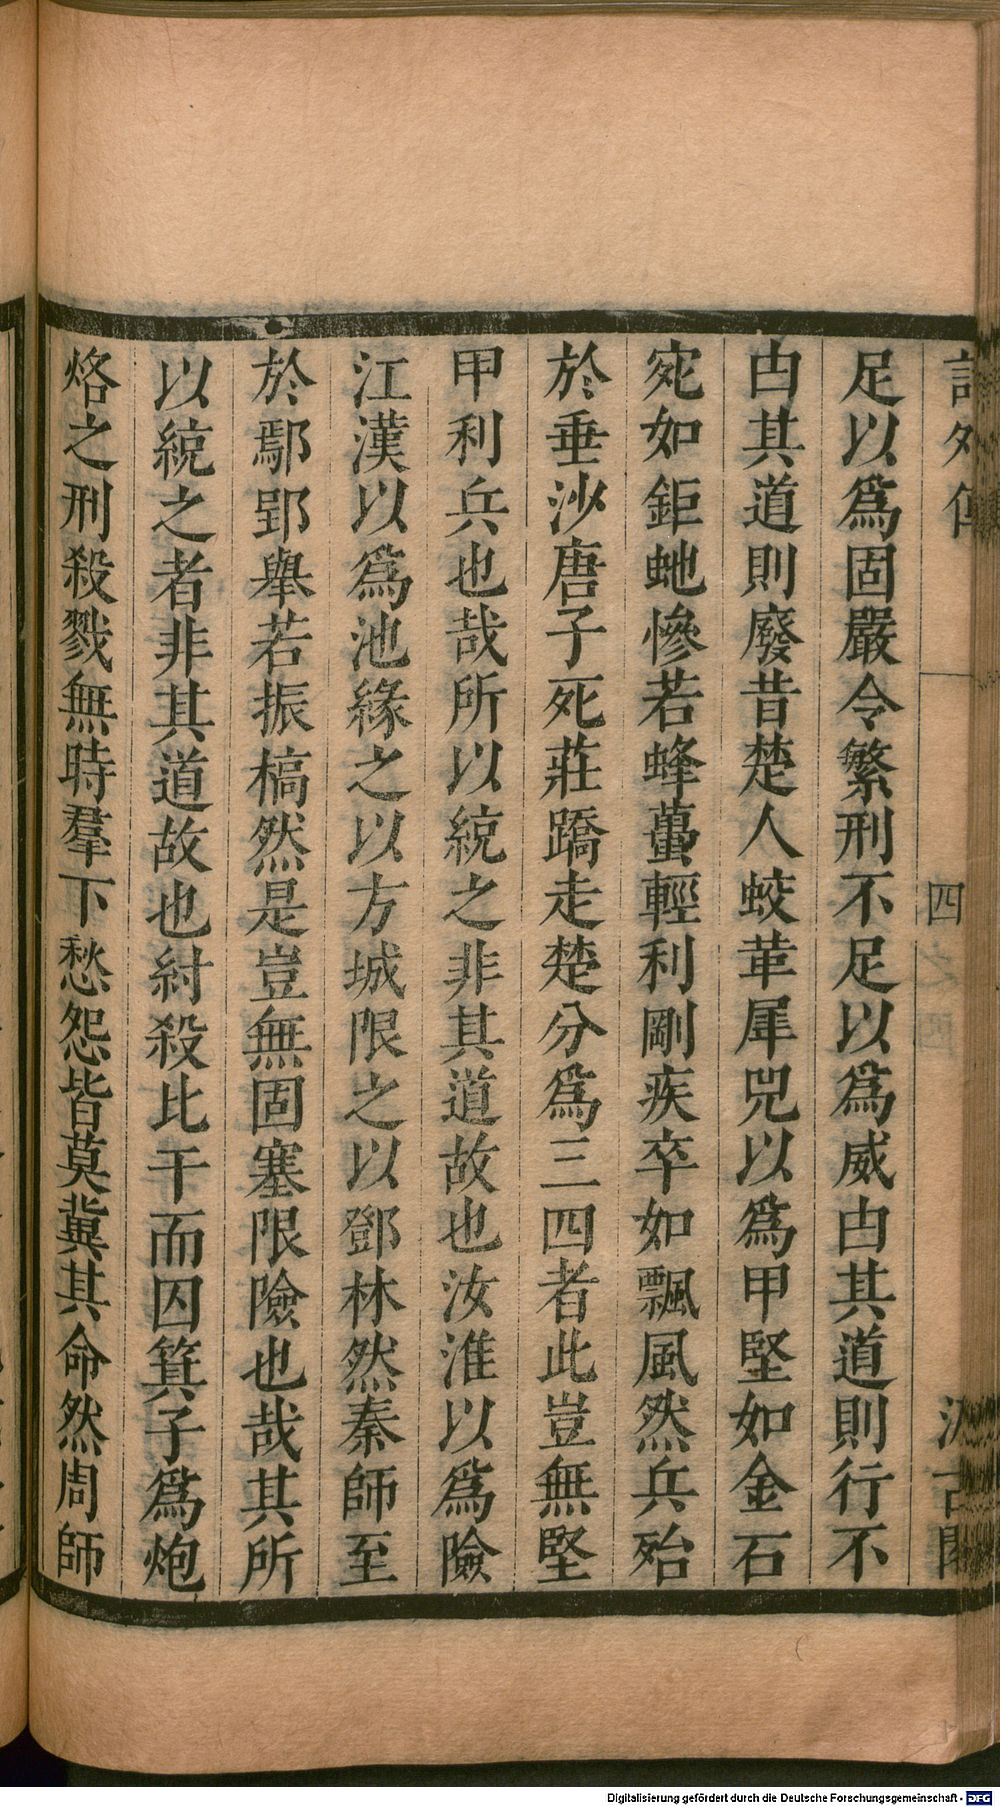 足以爲固嚴令繁刑不足以爲威由其道則行不
由其道則廢昔楚人蛟革犀兕以爲甲堅如金石
宛如鉅虵慘若蜂蠆輕利剛疾卒如飄風然兵殆
於垂沙唐子死莊蹻走楚分爲三四者此豈無堅
甲利兵也哉所以統之非其道故也汝淮以爲險
江漢以爲池緣之以方城限之以鄧林然秦師至
於鄢郢舉若振槁然是豈無固塞限險也哉其所
以統之者非其道故也紂殺比干而囚箕子爲炮
烙之刑殺戮無時羣下愁怨皆莫冀其命然周師
四
Digitalisierung gefördert durch die Deutsche Forschungsgemeinschaft - DFG